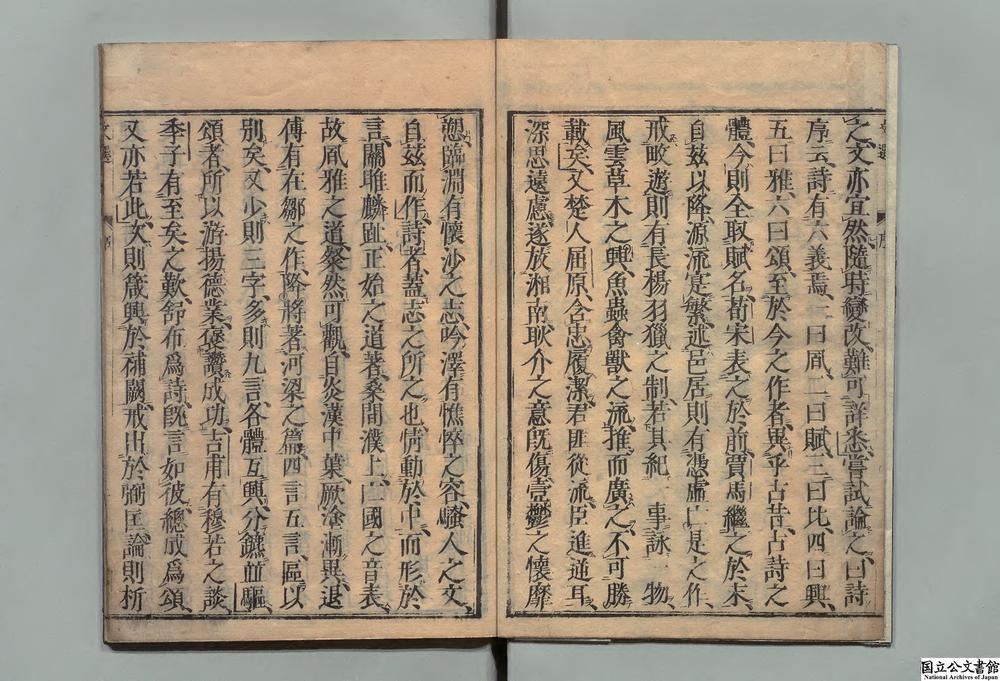 之文亦宜然隨時變改難可詳悉嘗試論之曰詩
序云詩有六義焉一曰風二曰賦三曰比四曰興
五曰雅六曰頌至於今之作者異乎古昔古詩之
體今則全取賦名荀宋表之於前賈馬繼之於末
自茲以降源流寔繁述邑居則有憑虛亡是之作
戒畋遊則有長楊羽獵之制若其紀一事詠一物
風雲草木之興魚蟲禽獸之流推而廣之不可勝
載矣又楚人屈原含忠履潔君匪從流臣進逆耳
深思遠慮遂放湘南耿介之意既傷壹鬱之懷靡
愬臨淵有懷沙之志吟澤有憔悴之容騷人之文
自茲而作詩者蓋志之所之也情動於中而形於
言關雎麟趾正始之道著桑間濮上亡國之音表
故風雅之道粲然可觀自炎漢中葉厥塗漸異退
傅有在鄒之作降將著河梁之篇四言五言區以
別矣又少則三字多則九言各體互興分鑣並驅
頌者所以游揚德業褒讚成功吉甫有穆若之談
季子有至矣之歎舒布爲詩既言如彼總成爲頌
又亦若此次則箴興於補闕戒出於弼匡論則析
文選 序
国立公文書館
National Archives of Japan